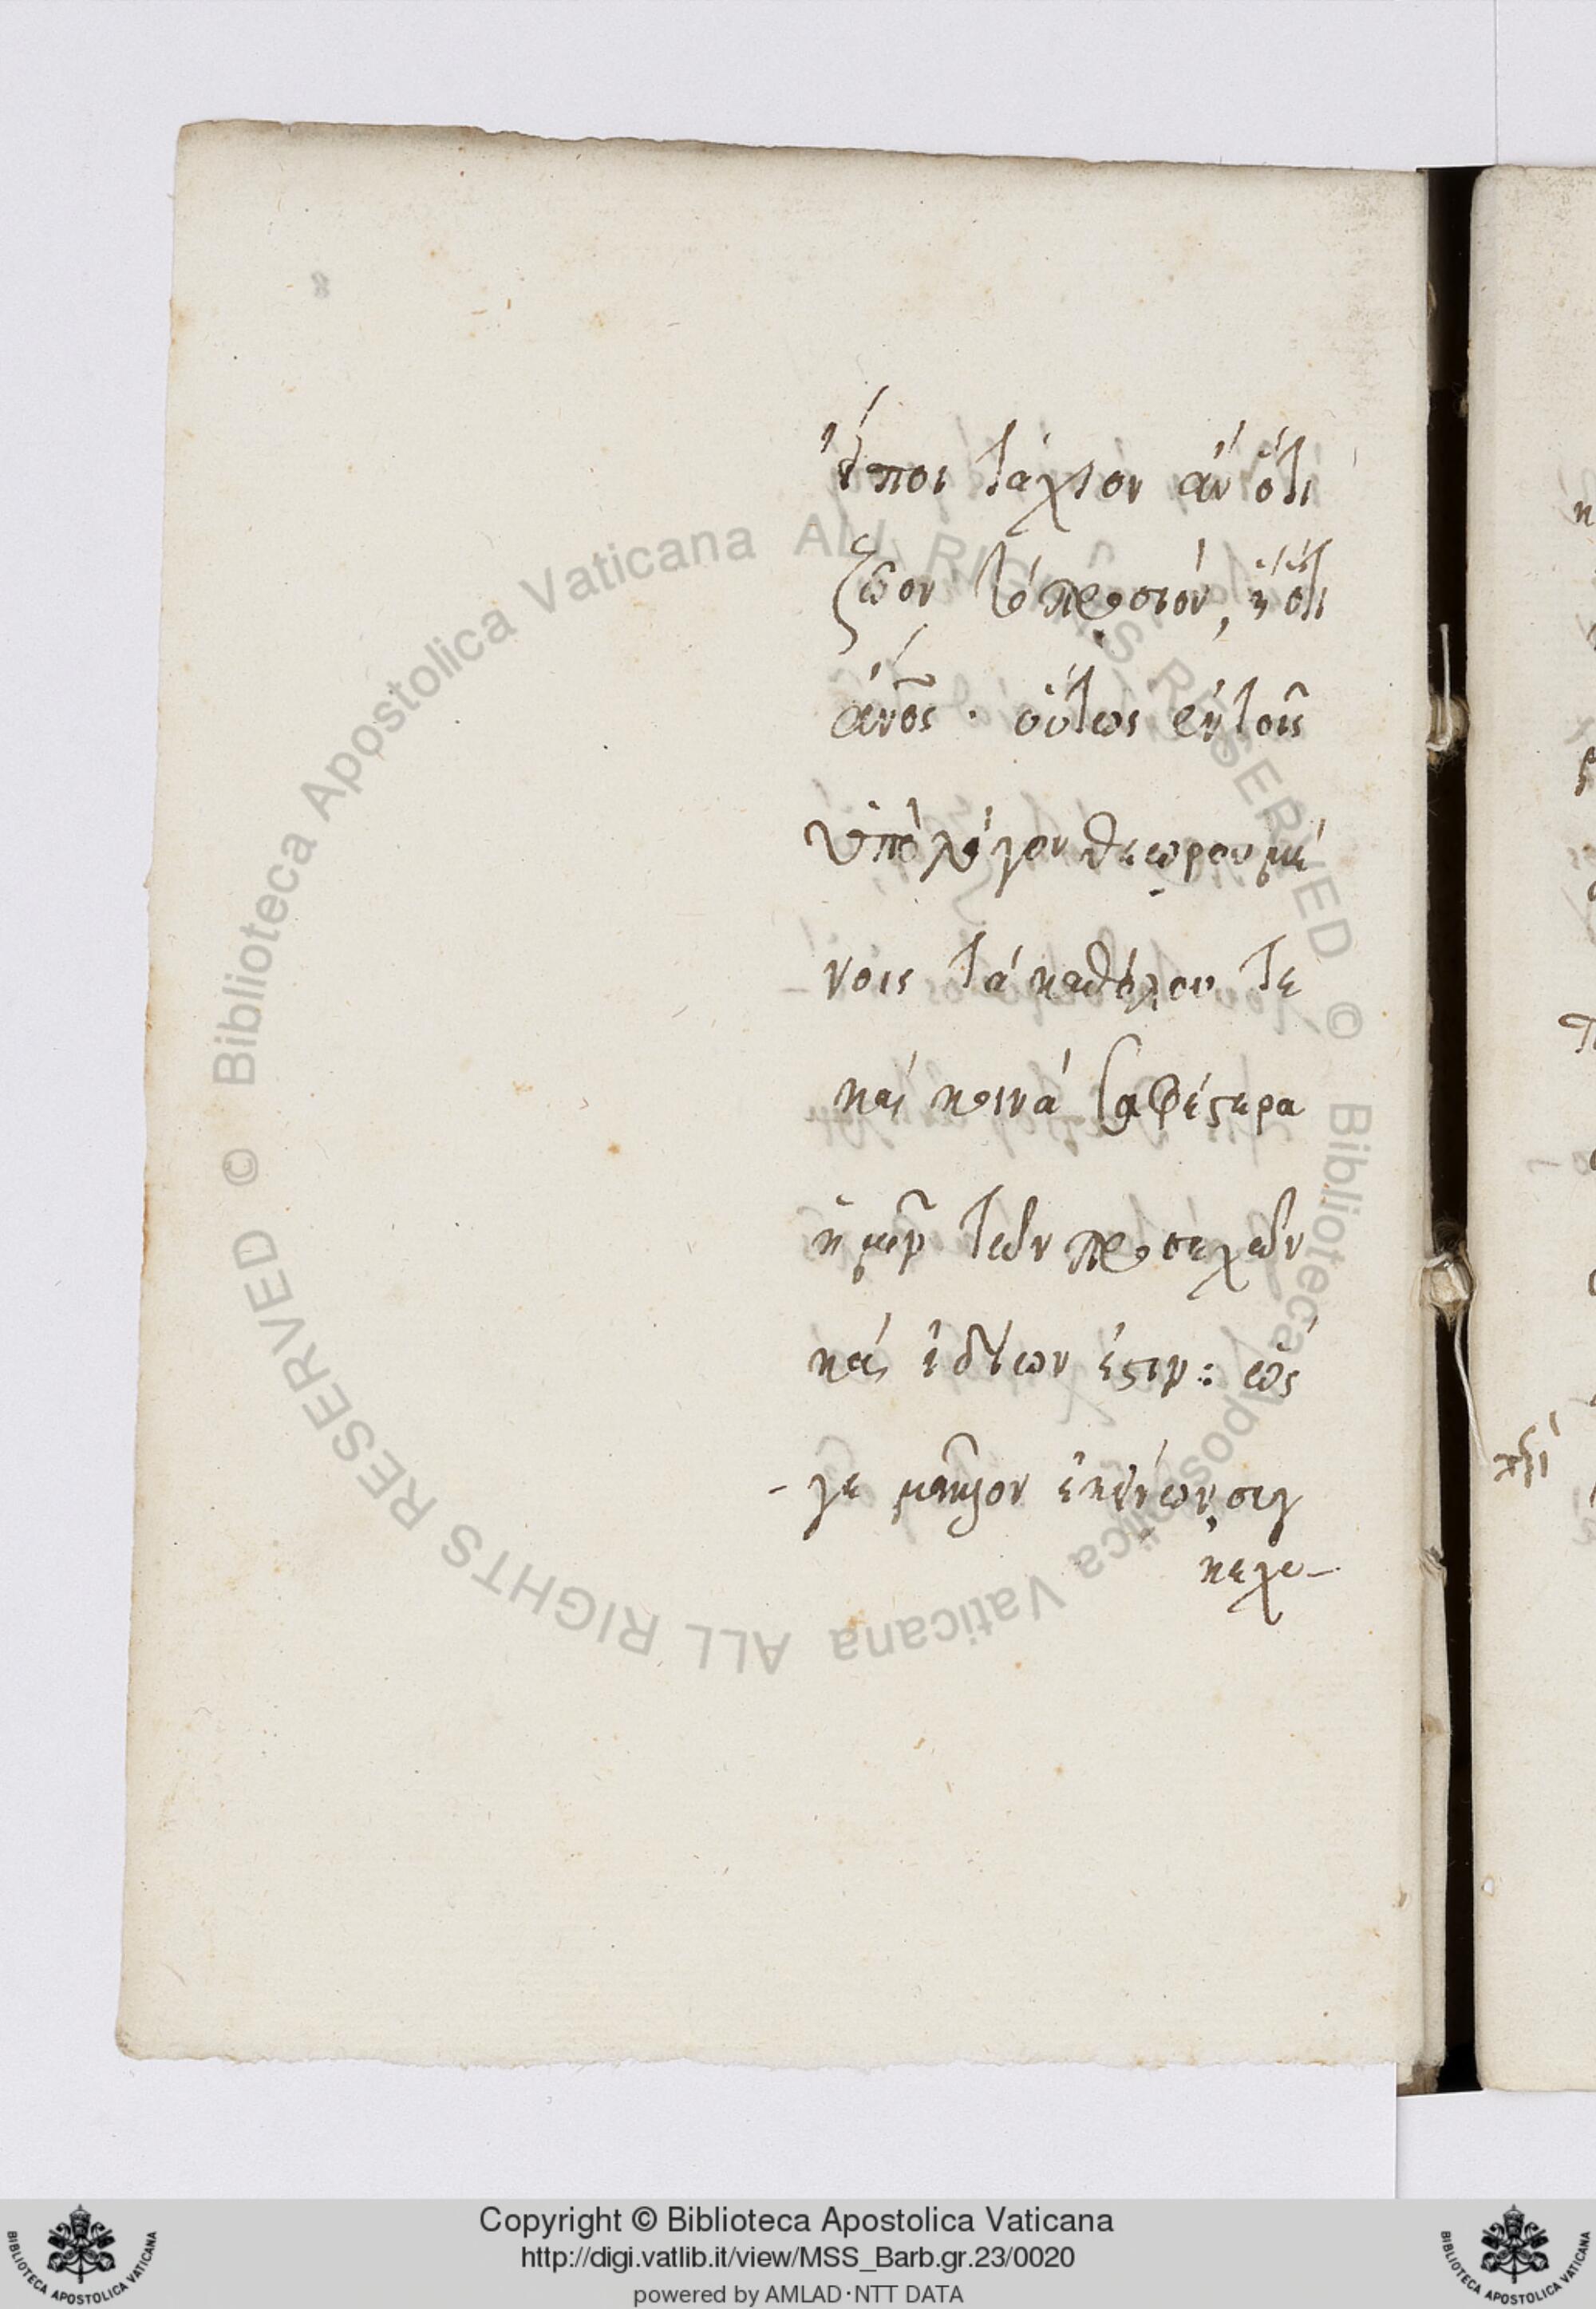 εἴποι τάχιον ἂν ὅτι
ζῶον τὸ προσιὸν, ἢ ὅτι
ἄν̅ο̅ς̅ · οὕτως ἐν τοῖς
ὑπὸ λόγον θεωρουμέ
νοις τὰ καθόλου τε
καὶ κοινὰ σαφέστερα
ἡμῖν τῶν προσεχῶν
καὶ ἰδίων ἐστιν : ὡς
γε μᾶλλον ἐκείνων συγ
κεχυ-
© Biblioteca Apostolica Vaticana ALL RIGHTS RESERVED © Biblioteca Apostolica Vaticana ALL RIGHTS RESERVED
Copyright © Biblioteca Apostolica Vaticana
http://digi.vatlib.it/view/MSS_Barb.gr.23/0020
powered by AMLAD·NTT DATA
BIBLIOTECA APOSTOLICA VATICANA
BIBLIOTECA APOSTOLICA VATICANA